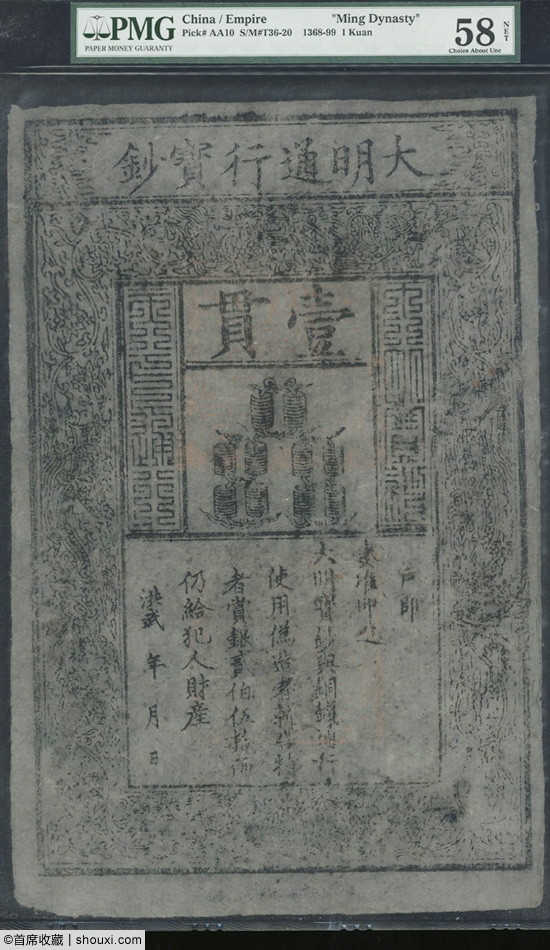 PMG
PAPER MONEY GUARANTY
China / Empire "Ming Dynasty"
Pick# AA10 S/M#T36-20 1368-99 1 Kuan
58 NET
Choice About Unc
大明通行寶鈔
壹貫
戶部
奏准印造
大明寶鈔與銅錢通行
使用偽造者斬告捕
者賞銀貳伯伍拾兩
仍給犯人財產
洪武 年 月 日
@首席收藏 | shouxi.com